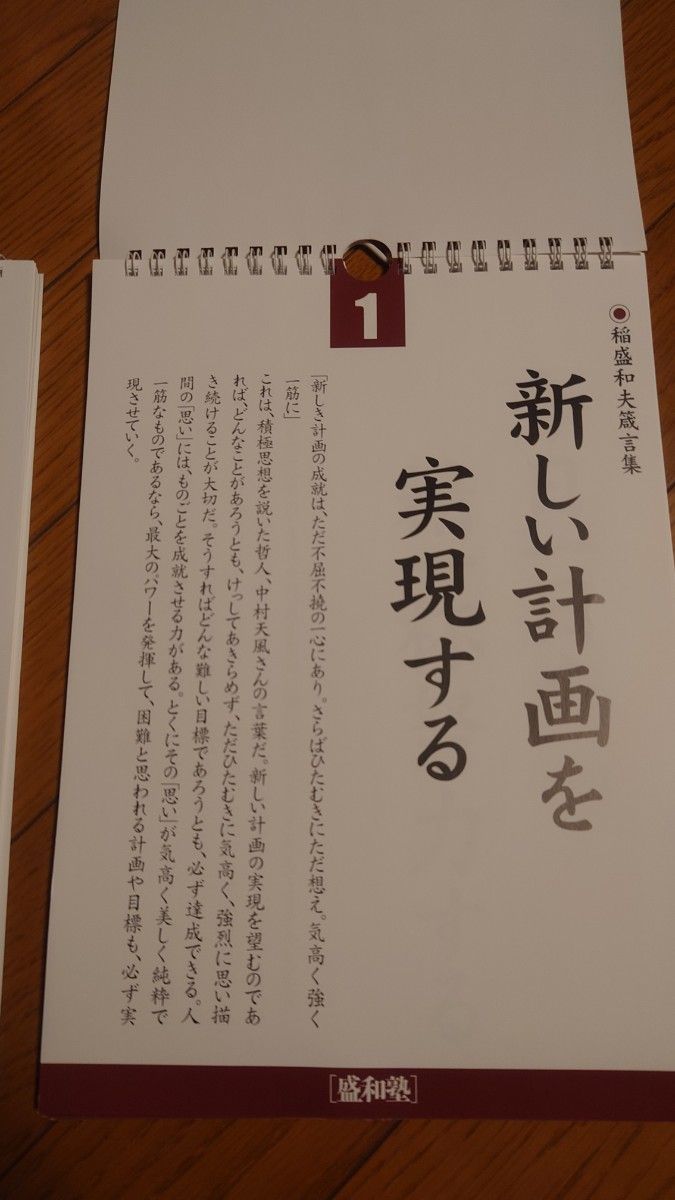 1
●稲盛和夫箴言集
新しい計画を
実現する
「新しき計画の成就は、ただ不屈不撓の一心にあり。さらばひたむきにただ想え。気高く強く
一筋に」
これは、積極思想を説いた哲人、中村天風さんの言葉だ。新しい計画の実現を望むのであ
れば、どんなことがあろうとも、けっしてあきらめず、ただひたむきに気高く、強烈に思い描
き続けることが大切だ。そうすればどんな難しい目標であろうとも、必ず達成できる。人
間の「思い」には、ものごとを成就させる力がある。とくにその「思い」が気高く美しく純粋で
一筋なものであるなら、最大のパワーを発揮して、困難と思われる計画や目標も、必ず実
現させていく。
[盛和塾]